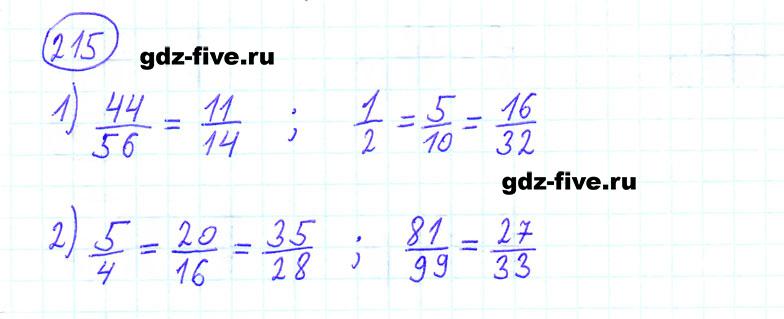 215 gdz-five.ru
1) 44/56 = 11/14 ; 1/2 = 5/10 = 16/32
gdz-five.ru
2) 5/4 = 20/16 = 35/28 ; 81/99 = 27/33